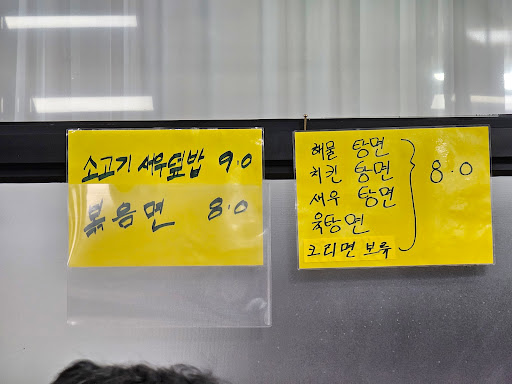 소고기 새우덮밥 9.0
볶음면 8.0
해물 탕면
치킨 탕면
새우 탕면
육탕면
코리면 보류
8.0